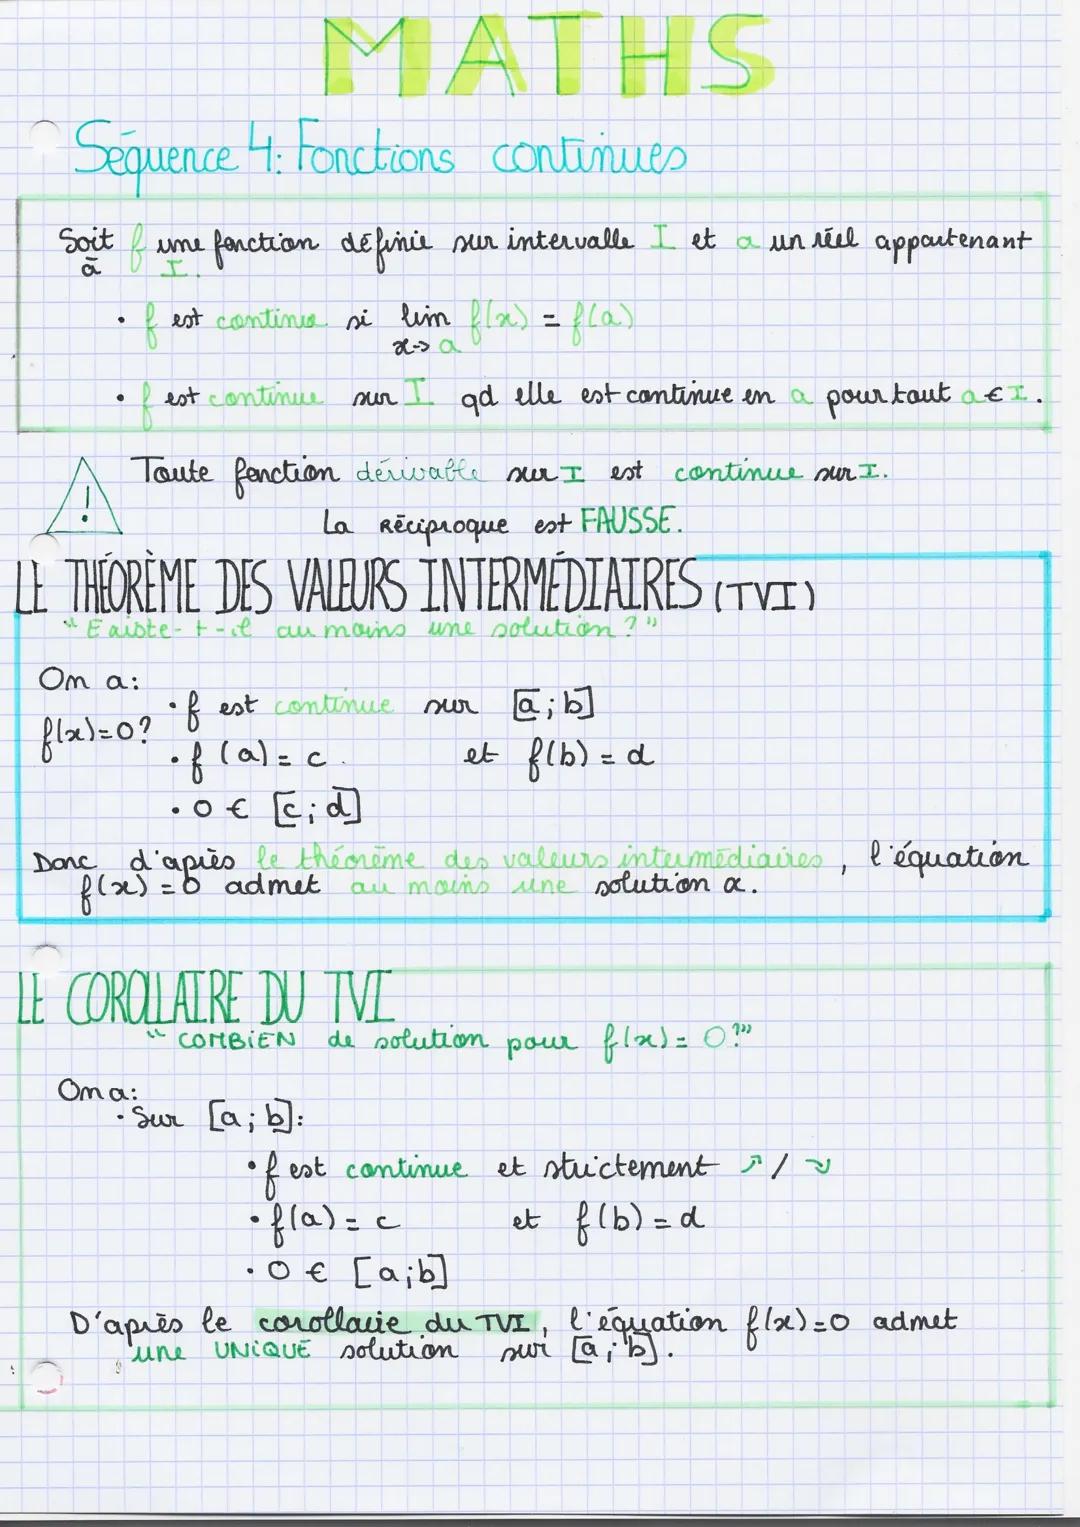 MATHS
Séquence 4: Fonctions continues
Soit f une fonction définie sur intervalle I et a un réel appartenant
à I.
• f est continue si lim f(x) = f(a)
x->a
• f est continue sur I qd elle est continue en a pour tout a € I.
! Toute fonction dérivable sur I est continue sur I.
La Réciproque est FAUSSE.
LE THÉORÈME DES VALEURS INTERMÉDIAIRES (TVI)
"Existe-t-il au moins une solution ?"
On a:
• f est continue sur [a;b]
f(x)=0?
• f(a) = c. et f(b) = d
• 0 € [c;d]
Donc d'après le théorème des valeurs intermédiaires, l'équation
f(x) = 0 admet au moins une solution α.
LE COROLLAIRE DU TVI
"COMBIEN de solution pour f(x) = 0?"
On a:
• Sur [a;b]:
• f est continue et strictement ↗/↘
• f(a) = c et f(b) = d
• 0 € [a;b]
D'après le corollaire du TVI, l'équation f(x)=0 admet
une UNIQUE solution sur [a;b].